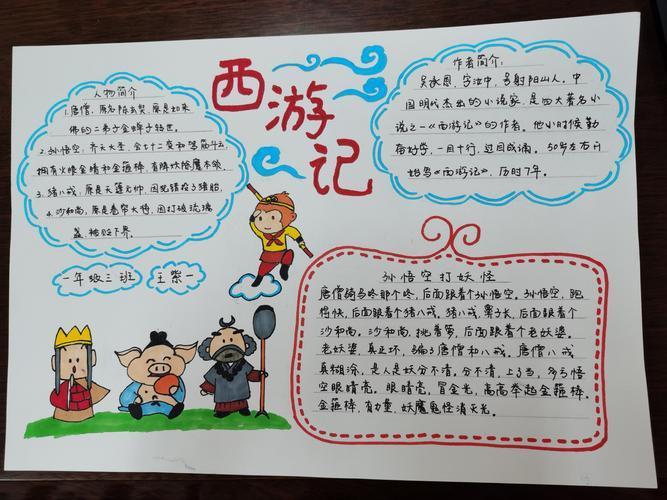 西游记
人物简介
1.唐僧,原名陈玄奘,原是如来
佛的二弟子金蝉子转世。
2.孙悟空,齐天大圣,会七十二变和筋斗云,
拥有火眼金睛和金箍棒,有降妖除魔本领。
3.猪八戒,原是天蓬元帅,因犯错投了猪胎,
4.沙和尚,原是卷帘大将,因打破琉璃
盏,被贬下界。
一年级三班
王紫一
作者简介:
吴承恩,字汝中,号射阳山人。中
国明代杰出的小说家,是四大著名小
说之一《西游记》的作者。他小时候勤
奋好学,一目十行,过目成诵。50岁左右开
始写《西游记》,历时7年。
孙悟空打妖怪
唐僧骑马咚那个咚,后面跟着个孙悟空。孙悟空,跑
得快,后面跟着个猪八戒。猪八戒,鼻子长,后面跟着个
沙和尚。沙和尚,挑着箩,后面跟着个老妖婆。
老妖婆,真正坏,骗了唐僧和八戒。唐僧八戒
真糊涂,是人是妖分不清。分不清,上了当,多亏悟
空眼睛亮。眼睛亮,冒金光,高高举起金箍棒。
金箍棒,有力量,妖魔鬼怪消灭光。